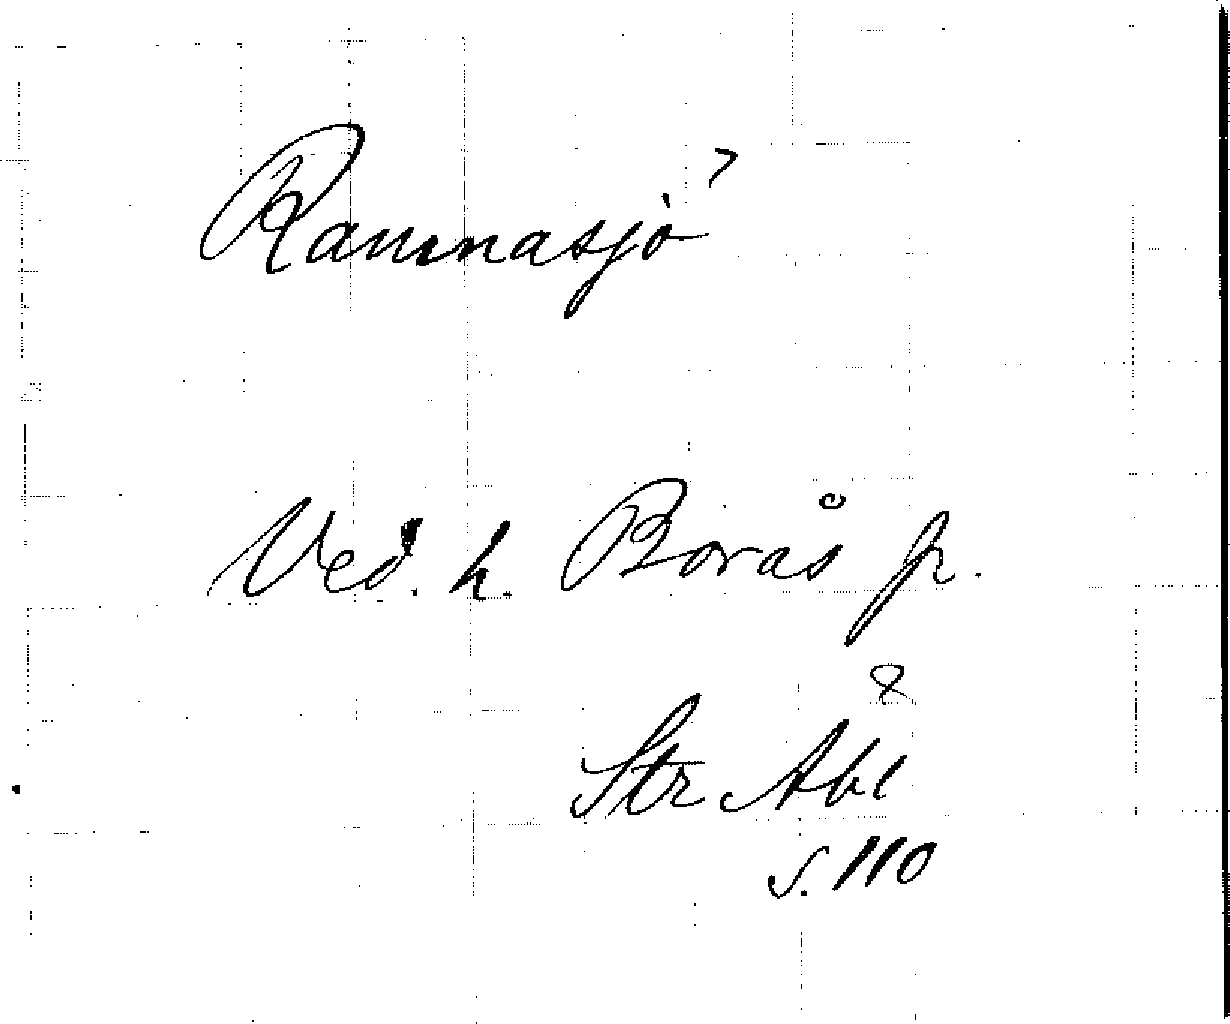 Ramnasjö
Ved. h. Borås fr.
Str Abl
s. 110